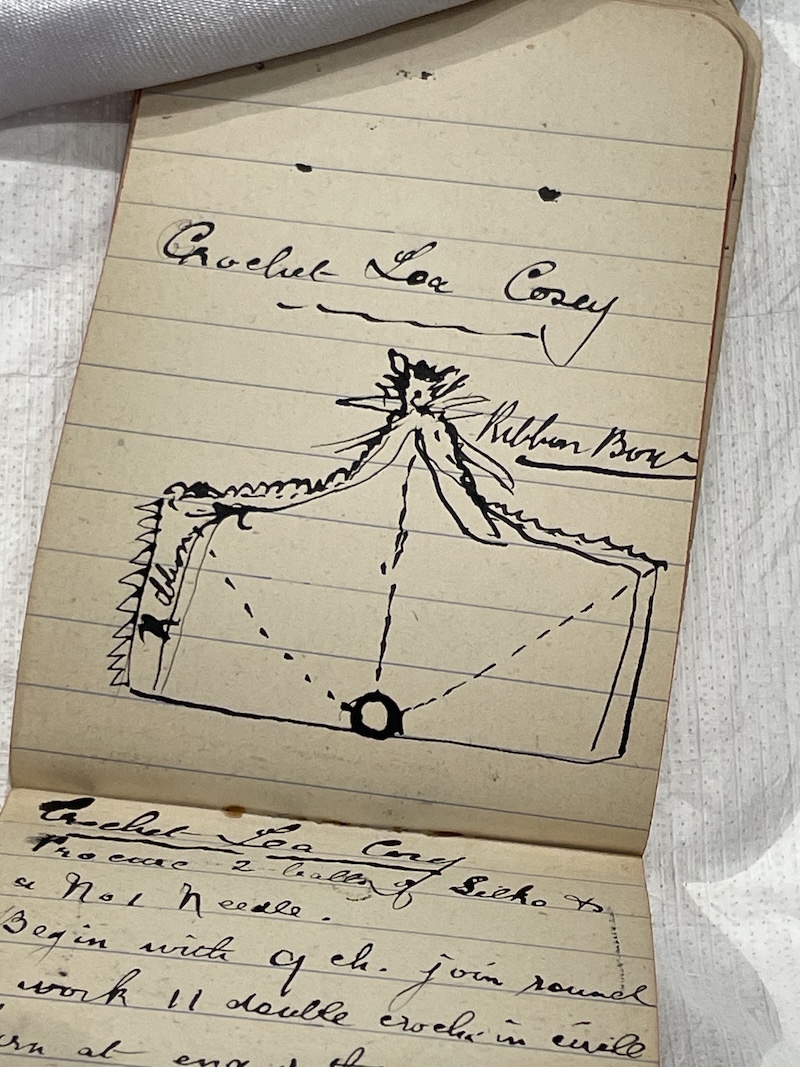 Crochet Tea Cosey
Ribbon Bow
Ribbon
Crochet Tea Cosy
Procure 2 balls of Silko &
a No 1 Needle.
Begin with 9 ch. join round
work 11 double croch. in circle
turn at end